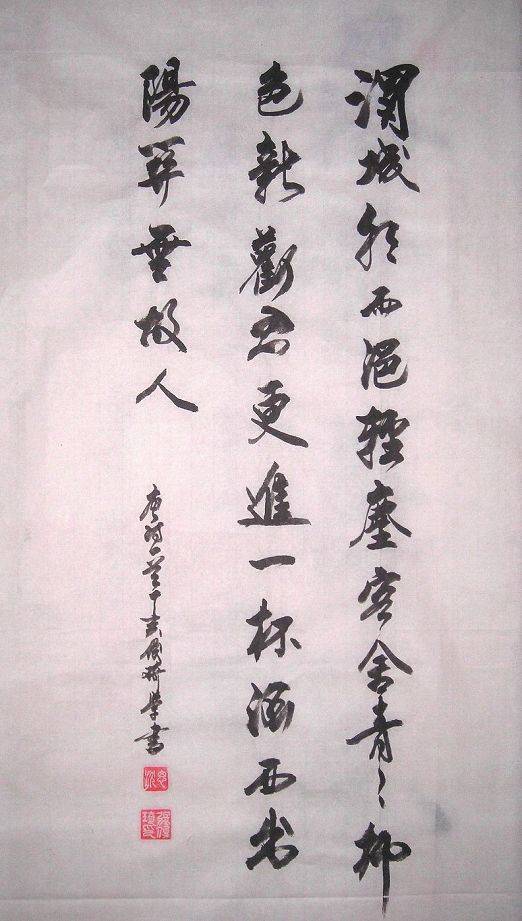 渭城朝雨浥輕塵客舍青〻柳
色新勸君更進一杯酒西出
陽關無故人
唐詩一首
學書